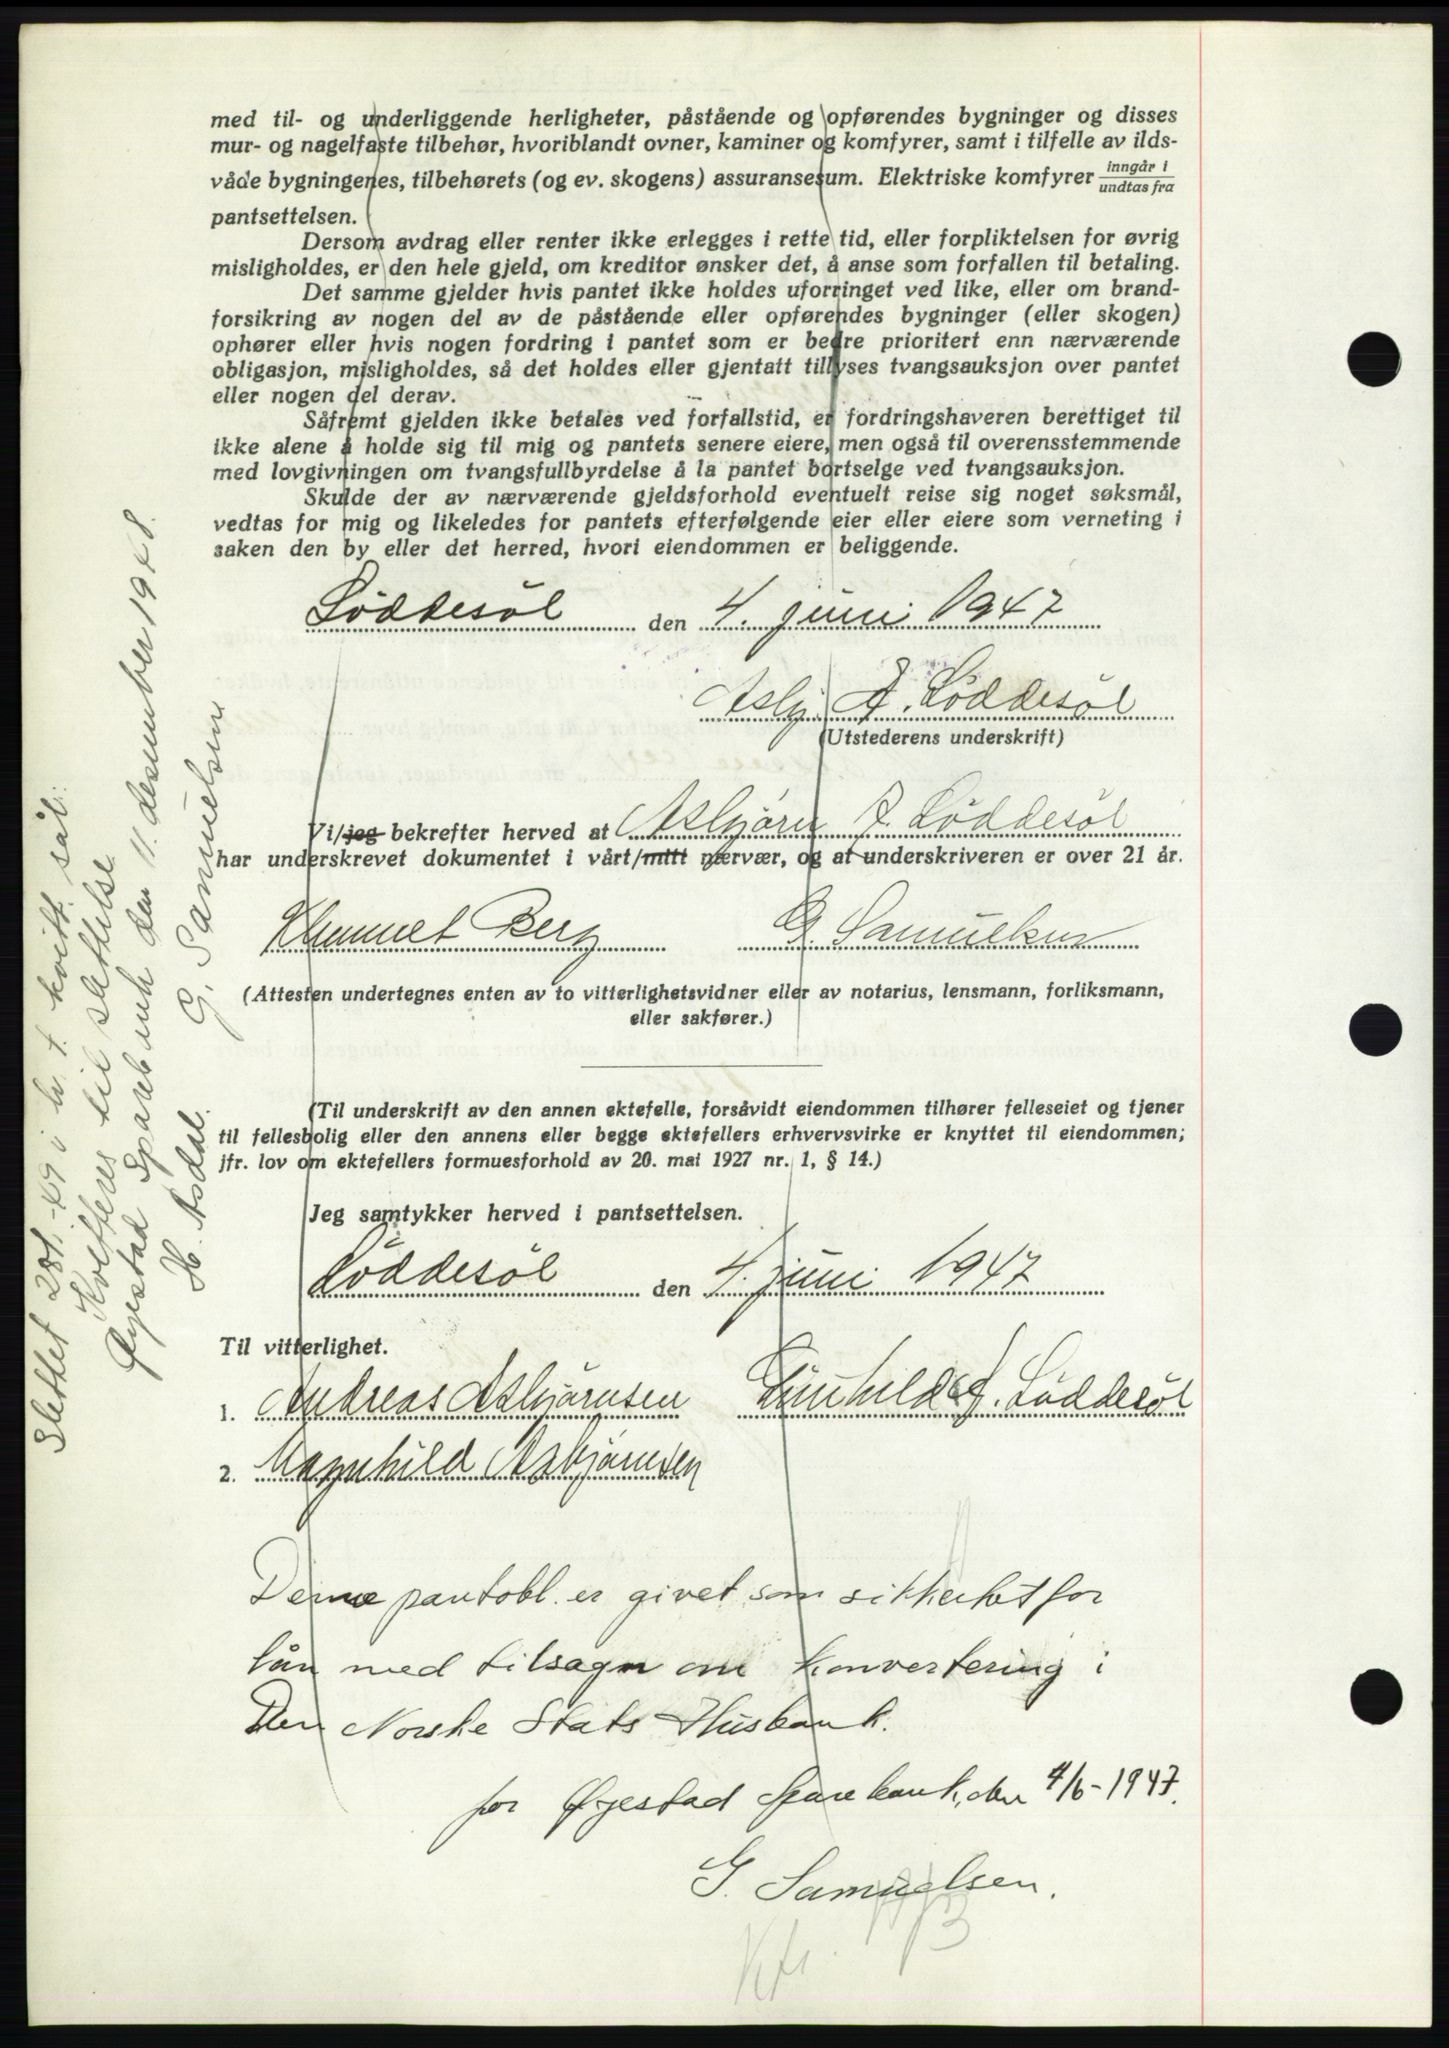 med til- og underliggende herligheter, påstående og opførendes bygninger og disses
mur- og nagelfaste tilbehør, hvoriblandt ovner, kaminer og komfyrer, samt i tilfelle av ilds-
våde bygningenes, tilbehørets (og ev. skogens) assuransesum. Elektriske komfyrer inngår i / undtas fra
pantsettelsen.
Dersom avdrag eller renter ikke erlegges i rette tid, eller forpliktelsen for øvrig
misligholdes, er den hele gjeld, om kreditor ønsker det, å anse som forfallen til betaling.
Det samme gjelder hvis pantet ikke holdes uforringet ved like, eller om brand-
forsikring av nogen del av de påstående eller opførendes bygninger (eller skogen)
ophører eller hvis nogen fordring i pantet som er bedre prioritert enn nærværende
obligasjon, misligholdes, så det holdes eller gjentatt tillyses tvangsauksjon over pantet
eller nogen del derav.
Såfremt gjelden ikke betales ved forfallstid, er fordringshaveren berettiget til
ikke alene å holde sig til mig og pantets senere eiere, men også til overensstemmende
med lovgivningen om tvangsfullbyrdelse å la pantet bortselge ved tvangsauksjon.
Skulde der av nærværende gjeldsforhold eventuelt reise sig noget søksmål,
vedtas for mig og likeledes for pantets efterfølgende eier eller eiere som verneting i
saken den by eller det herred, hvori eiendommen er beliggende.
Løddesøl den 4. juni 1947
Asbj. A. Løddesøl
(Utstederens underskrift)
Vi/jeg bekrefter herved at Asbjørn A. Løddesøl
har underskrevet dokumentet i vårt/mitt nærvær, og at underskriveren er over 21 år.
Berg G. Samuelsen
(Attesten undertegnes enten av to vitterlighetsvidner eller av notarius, lensmann, forliksmann,
eller sakfører.)
(Til underskrift av den annen ektefelle, forsåvidt eiendommen tilhører felleseiet og tjener
til fellesbolig eller den annens eller begge ektefellers erhvervsvirke er knyttet til eiendommen;
jfr. lov om ektefellers formuesforhold av 20. mai 1927 nr. 1, § 14.)
Jeg samtykker herved i pantsettelsen.
Løddesøl den 4. juni 1947
Til vitterlighet.
1. Andreas Asbjørnsen Gunhild A. Løddesøl
2. Magnhild Asbjørnsen
Denne pantobl. er givet som sikkerhet for
lån med tilsagn om konvertering i
Den Norske Stats Husbank.
for Øyestad Sparebank, den 4/6-1947.
G. Samuelsen.
Slettet 28/1.-49 i h. t. kvitt. sål.:
Kvitteres til slettelse
Øyestad Sparebank den 11. desember 1948.
H. Asdal. G. Samuelsen